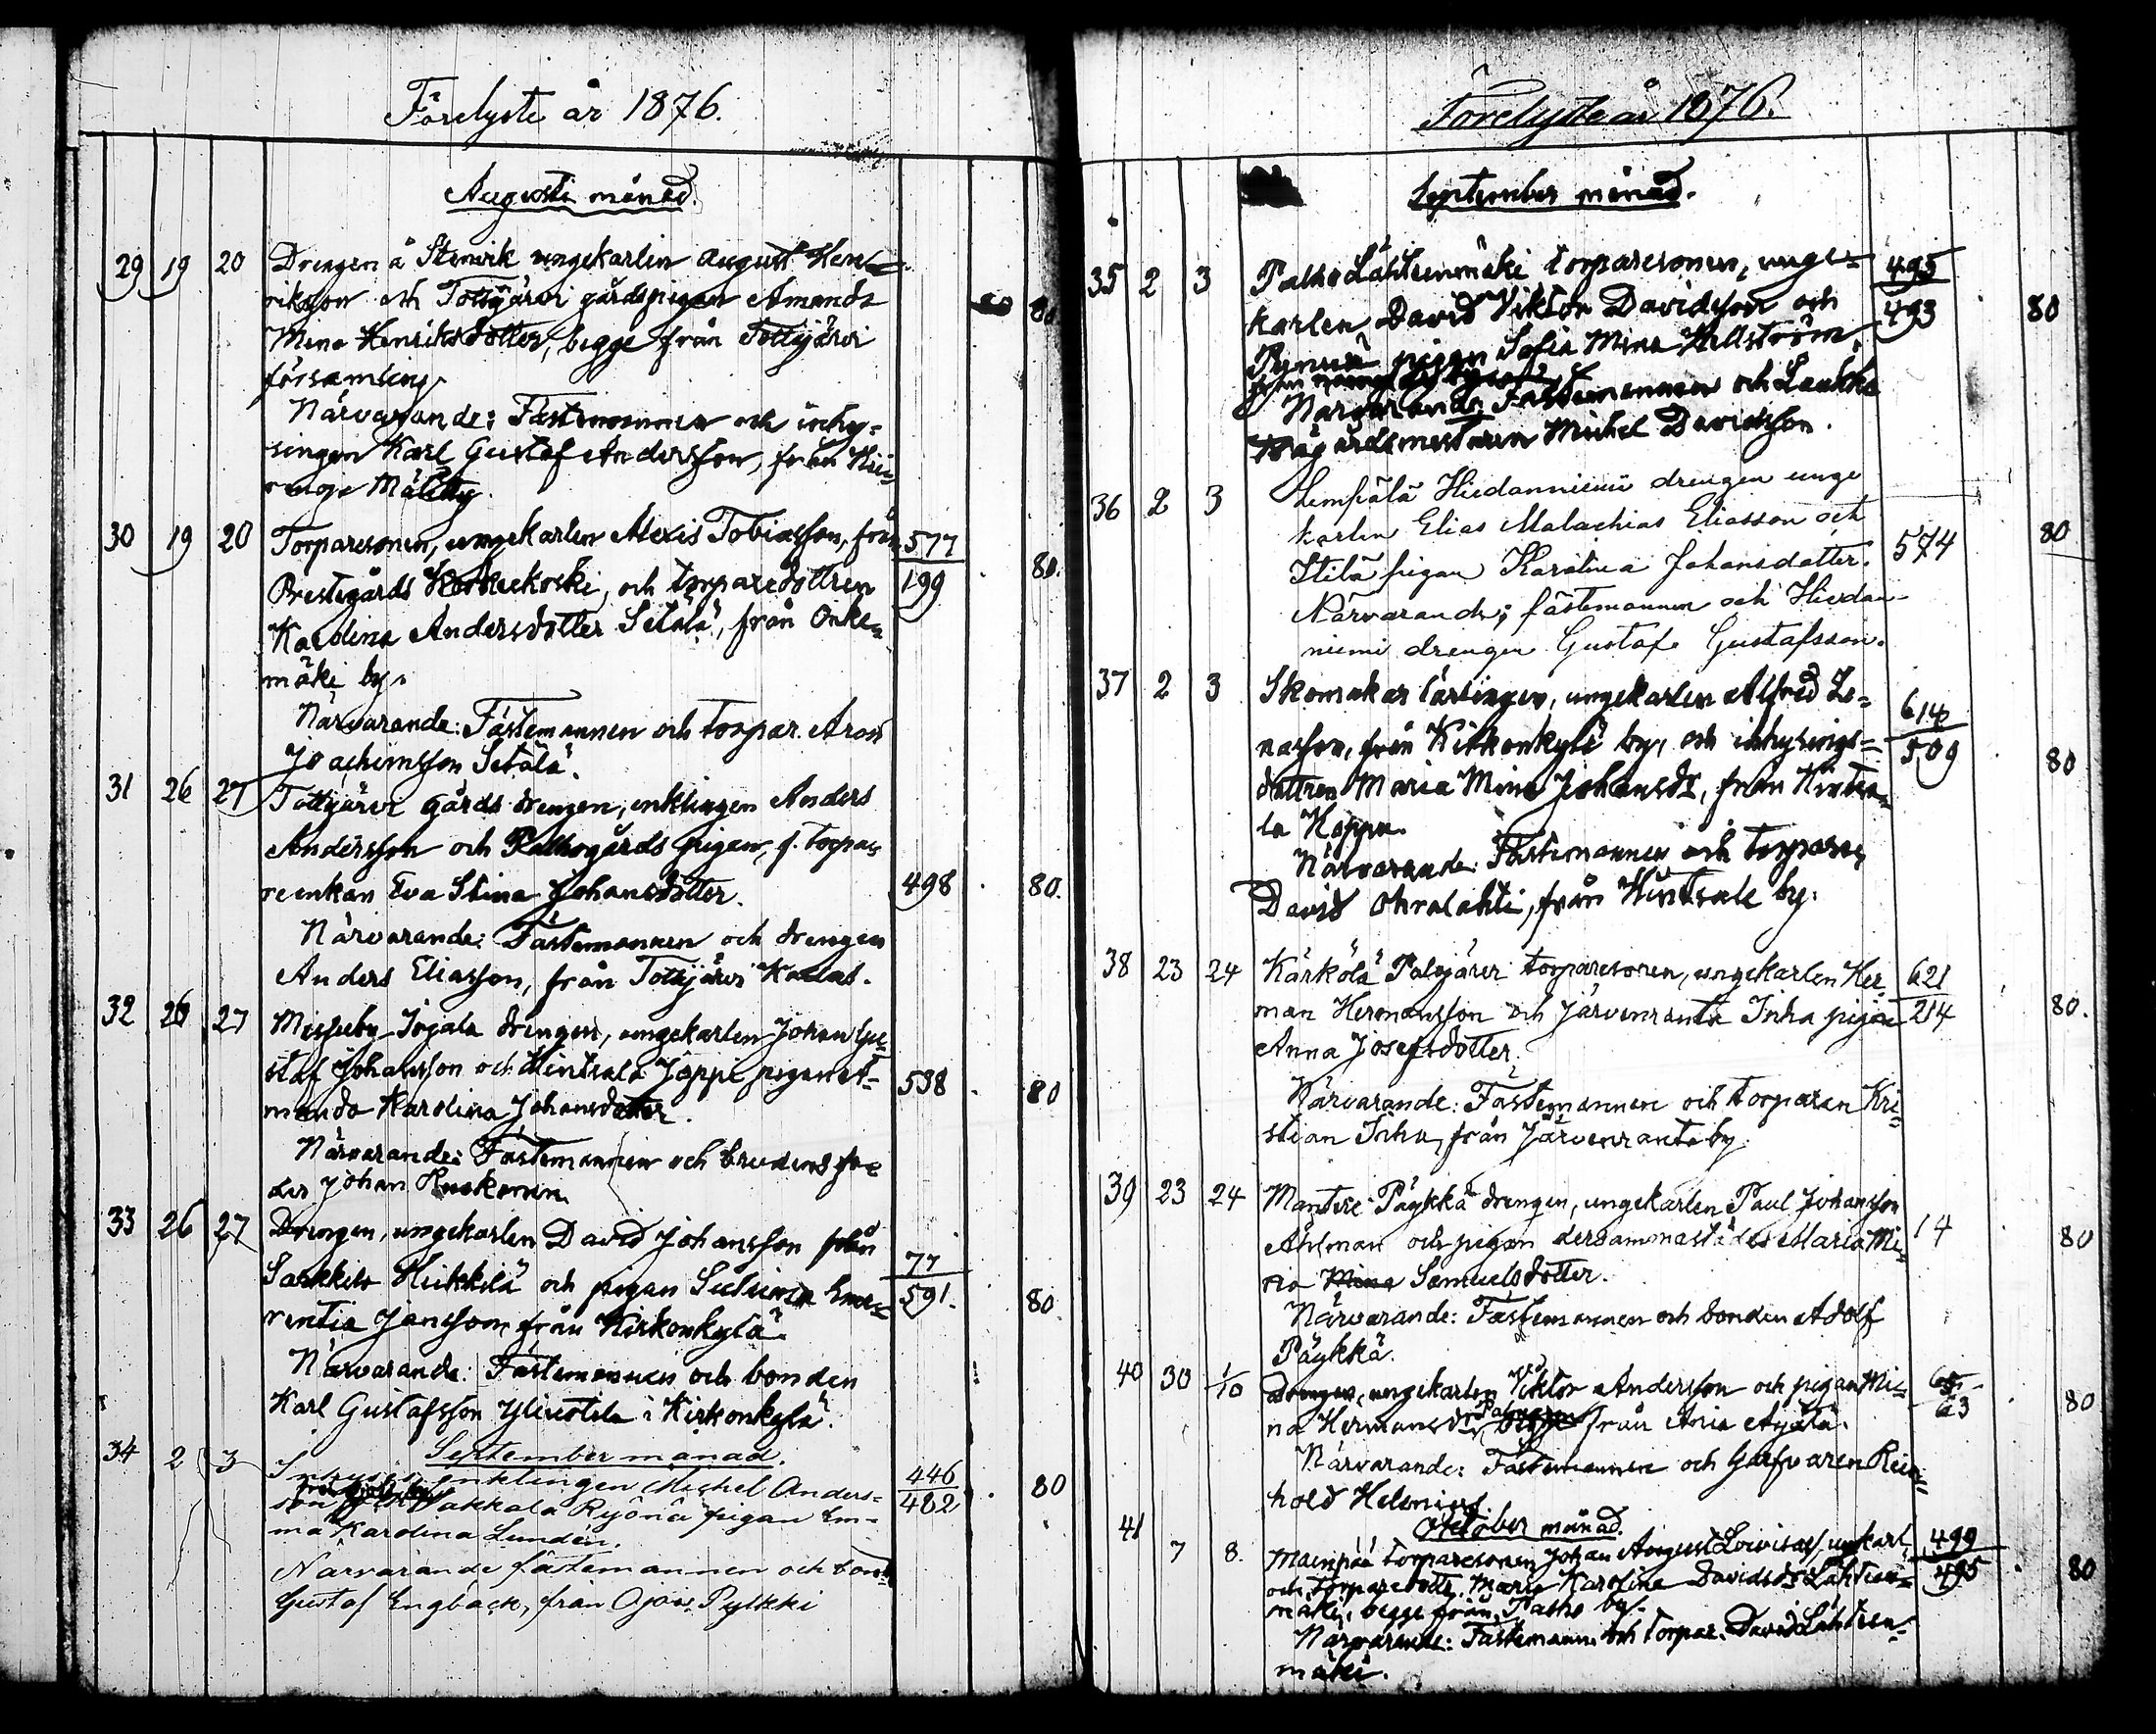 Förelyste år 1876.
Augusti månad.
29 19 20 Drengen å Stenvik ungekarlen August Hen-
riksson och Tottijärvi gårdspigan Amanda 80
Mina Henriksdotter, begge från Tottijärvi
församling.
Närvarande: Fästemannen och inhy-
singen Karl Gustaf Andersson, från
Mälldby.
30 19 20 Torparesonen, ungekarlen Alexis Tobiasson, från 577
Prestegårds och torparedottren 199 80.
Karolina Andersdotter Setälä, från Onke-
mäki by.
Närvarande: Fästemannen och torpar. Aron
Joachimsson Setälä.
31 26 27 Tottijärvi gårds drengen, enklingen Anders
Andersson och Palhogårds pigan, f. torpa-
reenkan Eva Stina Johansdotter. 498 80.
Närvarande: Fästemannen och drengen
Anders Eliasson, från Tottijärvi
32 26 27 Jogala drengen, ungekarlen Johan Gu-
staf Johansson och Hintsala Joppi pigan A- 538 80
manda Karolina Johansdotter.
Närvarande: Fästemannen och brudens fa-
der Johan
33 26 27 Drengen, ungekarlen David Johansson från 77
Sarkkila Heikkilä och pigan Eme- 591. 80
rentia Jansson, från Kirkonkylä.
Närvarande: Fästemannen och bonden
Karl Gustafsson Yliuotila i Kirkonkylä.
September månad.
34 2 3 enklingen Michel Anders- 446
son Wakkala Ryönä pigan Em- 482 80
ma Karolina Lundén.
Närvarande fästemannen och bond.
Gustaf Engbäck, från Ojois Pylkki
Förelyste år 1876.
September månad.
35 2 3 Palho Lähteenmäki torparesonen, unge- 495
karlen David Viktor Davidsson och 493 80
pigan Sofia Mina Hellström,
Närvarande: Fästemannen och Laukko
trägårdsmestaren Michel Davidsson.
36 2 3 Lempälä Hiidanniemi drengen unge
karlen Elias Malachias Eliasson och 80
pigan Karolina Johansdotter. 574
Närvarande; fästemannen och Hiedan-
niemi drengen Gustaf Gustafsson.
37 2 3 Skomakar lärlingen, ungekarlen Alfred Jo- 614
nasson, från Kirkonkylä by, och inhysings- 509 80
dottren Maria Mina Johansdr, från Hintsa-
la Koppa.
Närvarande: Fästemannen och torparen
David Ohralahti, från Hintsala by.
38 23 24 Kärkölä Palojärvi torparesonen, ungekarlen Her- 621
man Hermansson och Järvenranta Inha pigan 214 80.
Anna Josefsdotter.
Närvarande: Fästemannen och torparen Kri-
stian Inha, från Järvenranta by.
39 23 24 Mantere Päykkä drengen, ungekarlen Paul Johansson
Åhlman och pigan dersammastädes Maria Mi- 14 80
na Mina Samuelsdotter.
Närvarande: Fästemannen och bonden Adolf
Päykkä.
40 30 1/10 Drengen, ungekarlen Viktor Andersson och pigan Mi-
na Hermansdr, från Äijälä. 63 80
Närvarande: Fästemannen och Garfvaren Rein-
hold Helenius.
October månad.
41 7 8. Mäenpää torparesonen Johan August Lovisas. ungkarl. 499
och torparedottr. Maria Karolina Davidsdr Lähteen- 495 80
mäki, begge från Palho by.
Närvarande: Fästemann. och torpar. David Lähteen-
mäki.